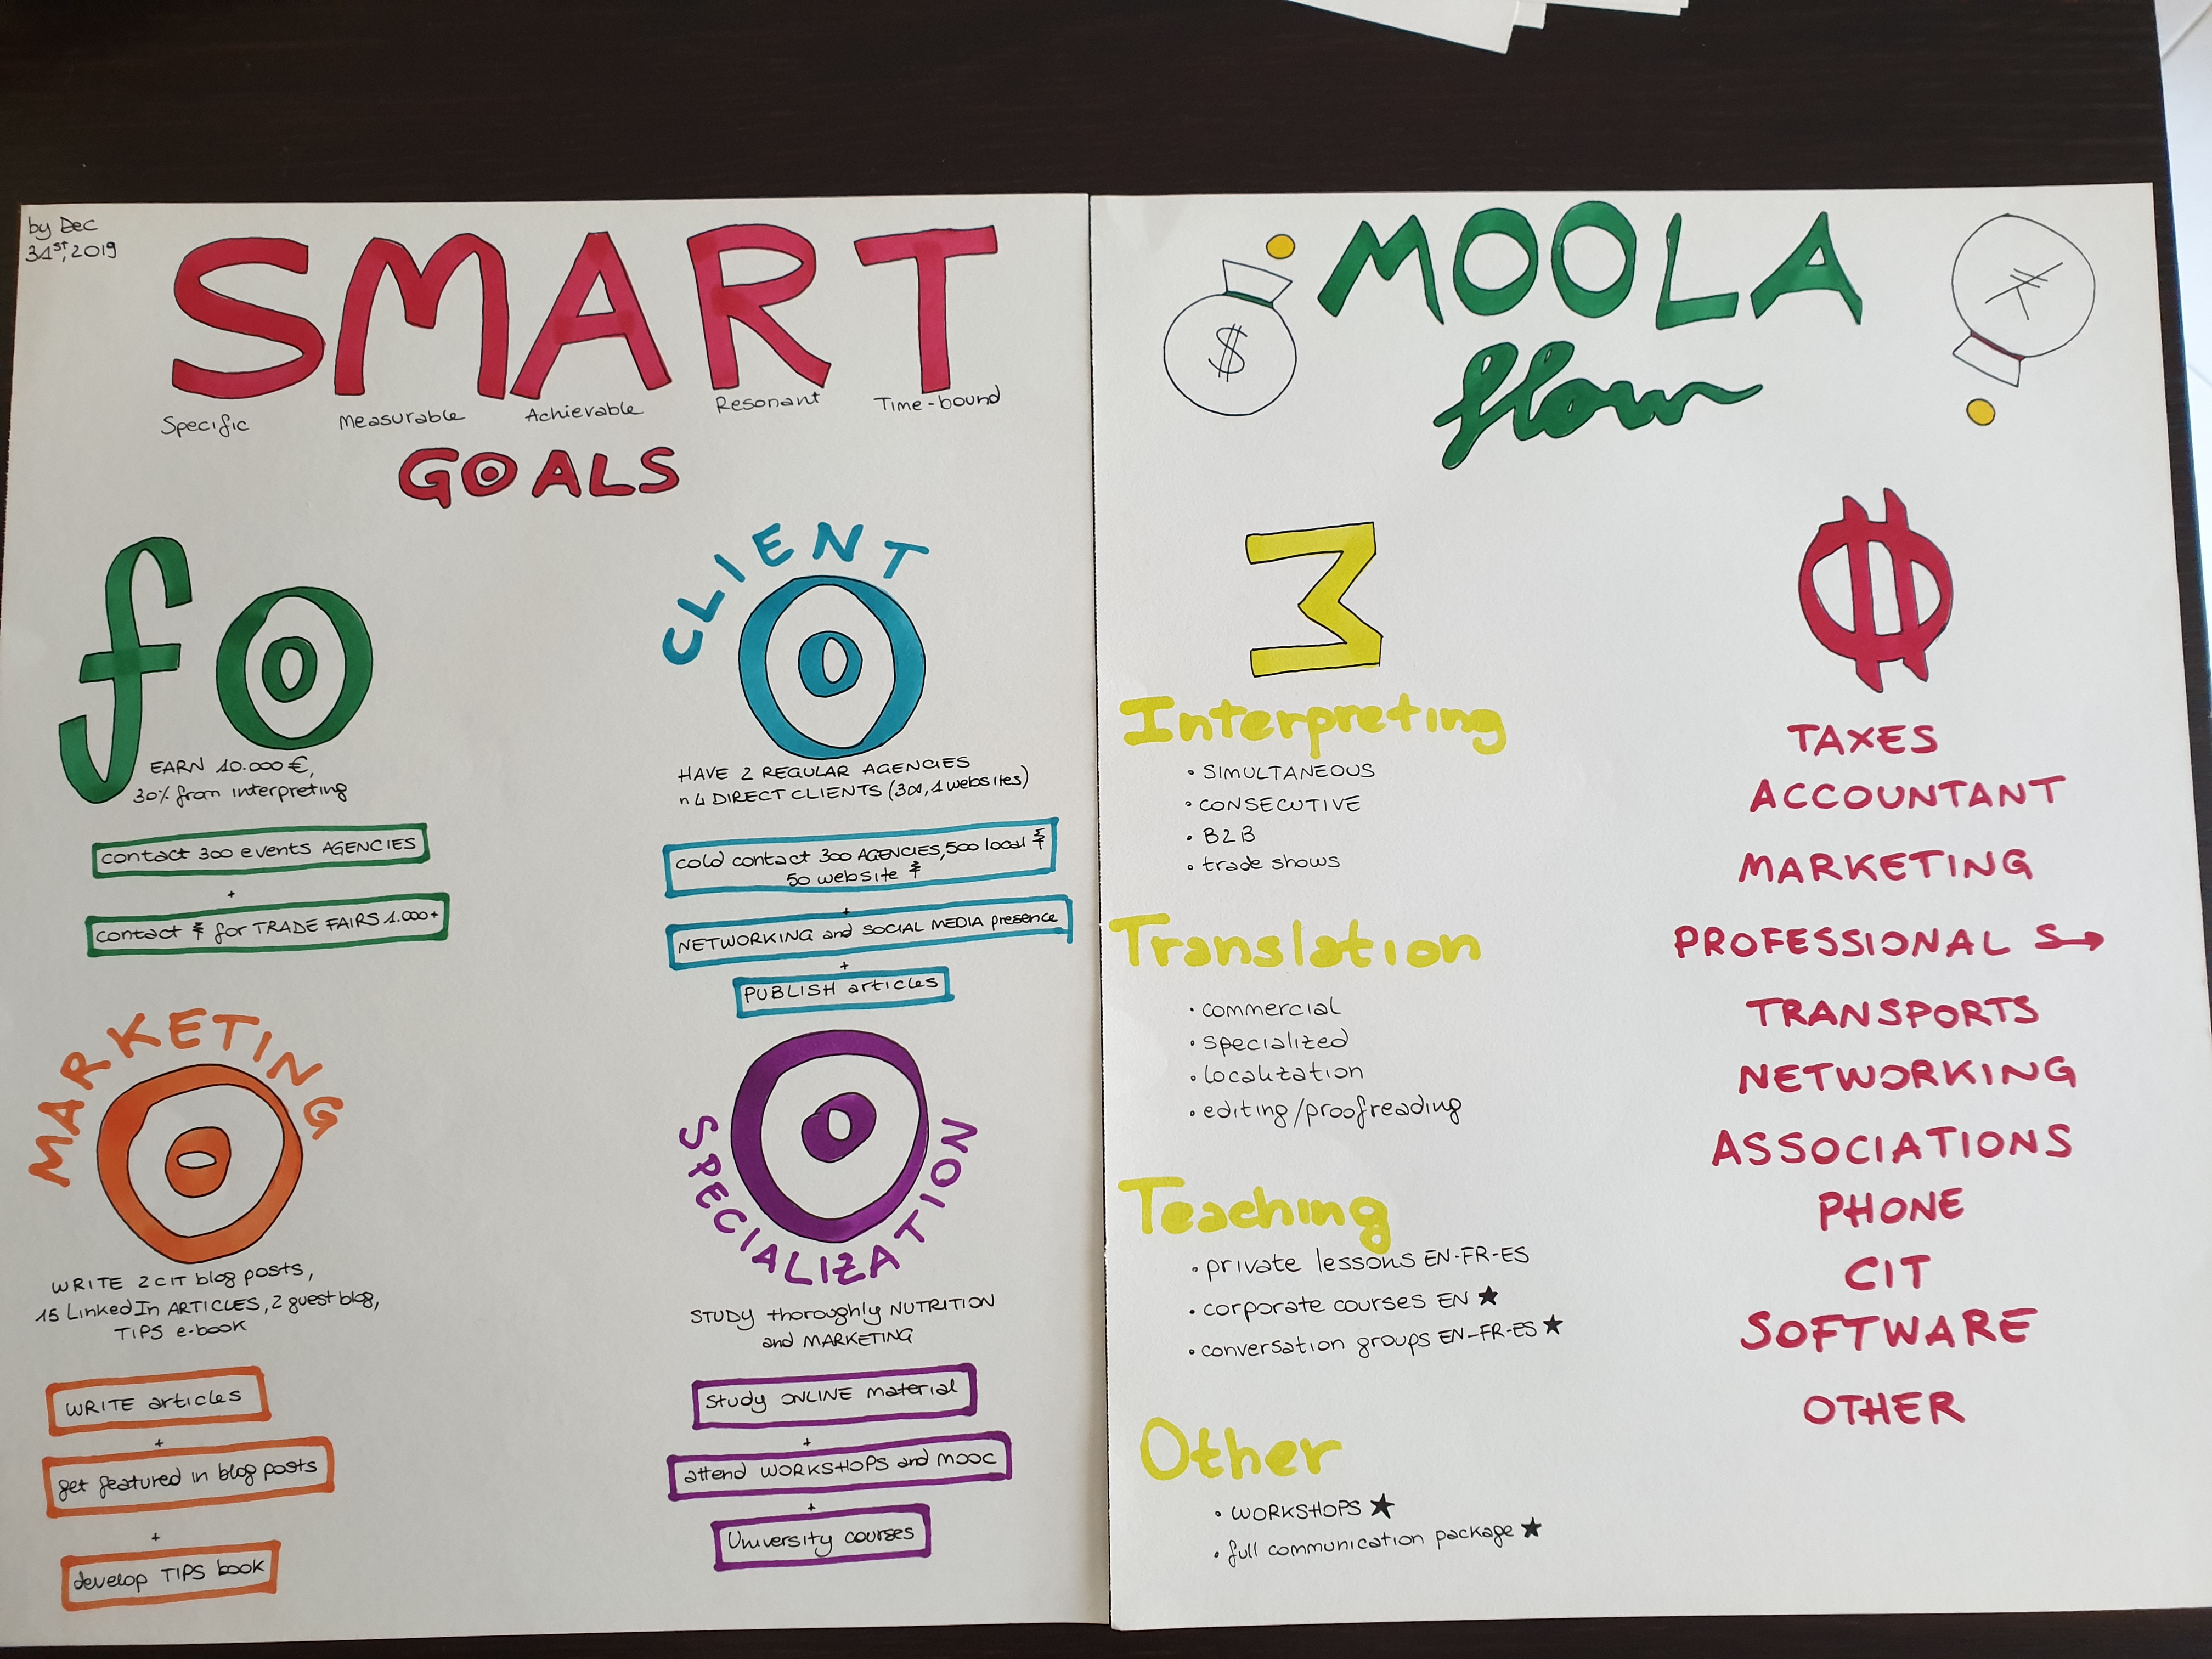 by Dec
31st, 2019
SMART
Specific Measurable Achievable Resonant Time-bound
GOALS
fO
EARN 10.000 €,
30% from interpreting
contact 300 events AGENCIES
+
contact for TRADE FAIRS 1.000+
CLIENT
O
HAVE 2 REGULAR AGENCIES
4 DIRECT CLIENTS (3 , 1 websites)
cold contact 300 AGENCIES, 500 local
50 website
+
NETWORKING and SOCIAL MEDIA presence
+
PUBLISH articles
MARKETING
O
WRITE 2 CIT blog posts,
15 LinkedIn ARTICLES, 2 guest blog,
TIPS e-book
WRITE articles
+
get featured in blog posts
+
develop TIPS book
O
SPECIALIZATION
STUDY thoroughly NUTRITION
and MARKETING
Study ONLINE material
+
attend WORKSHOPS and MOOC
+
University courses
MOOLA
flow
$
Interpreting
• SIMULTANEOUS
• CONSECUTIVE
• B2B
• trade shows
Translation
• commercial
• specialized
• localization
• editing/proofreading
Teaching
• private lessons EN-FR-ES
• corporate courses EN ★
• conversation groups EN-FR-ES ★
Other
• WORKSHOPS ★
• full communication package ★
TAXES
ACCOUNTANT
MARKETING
PROFESSIONAL S→
TRANSPORTS
NETWORKING
ASSOCIATIONS
PHONE
CIT
SOFTWARE
OTHER